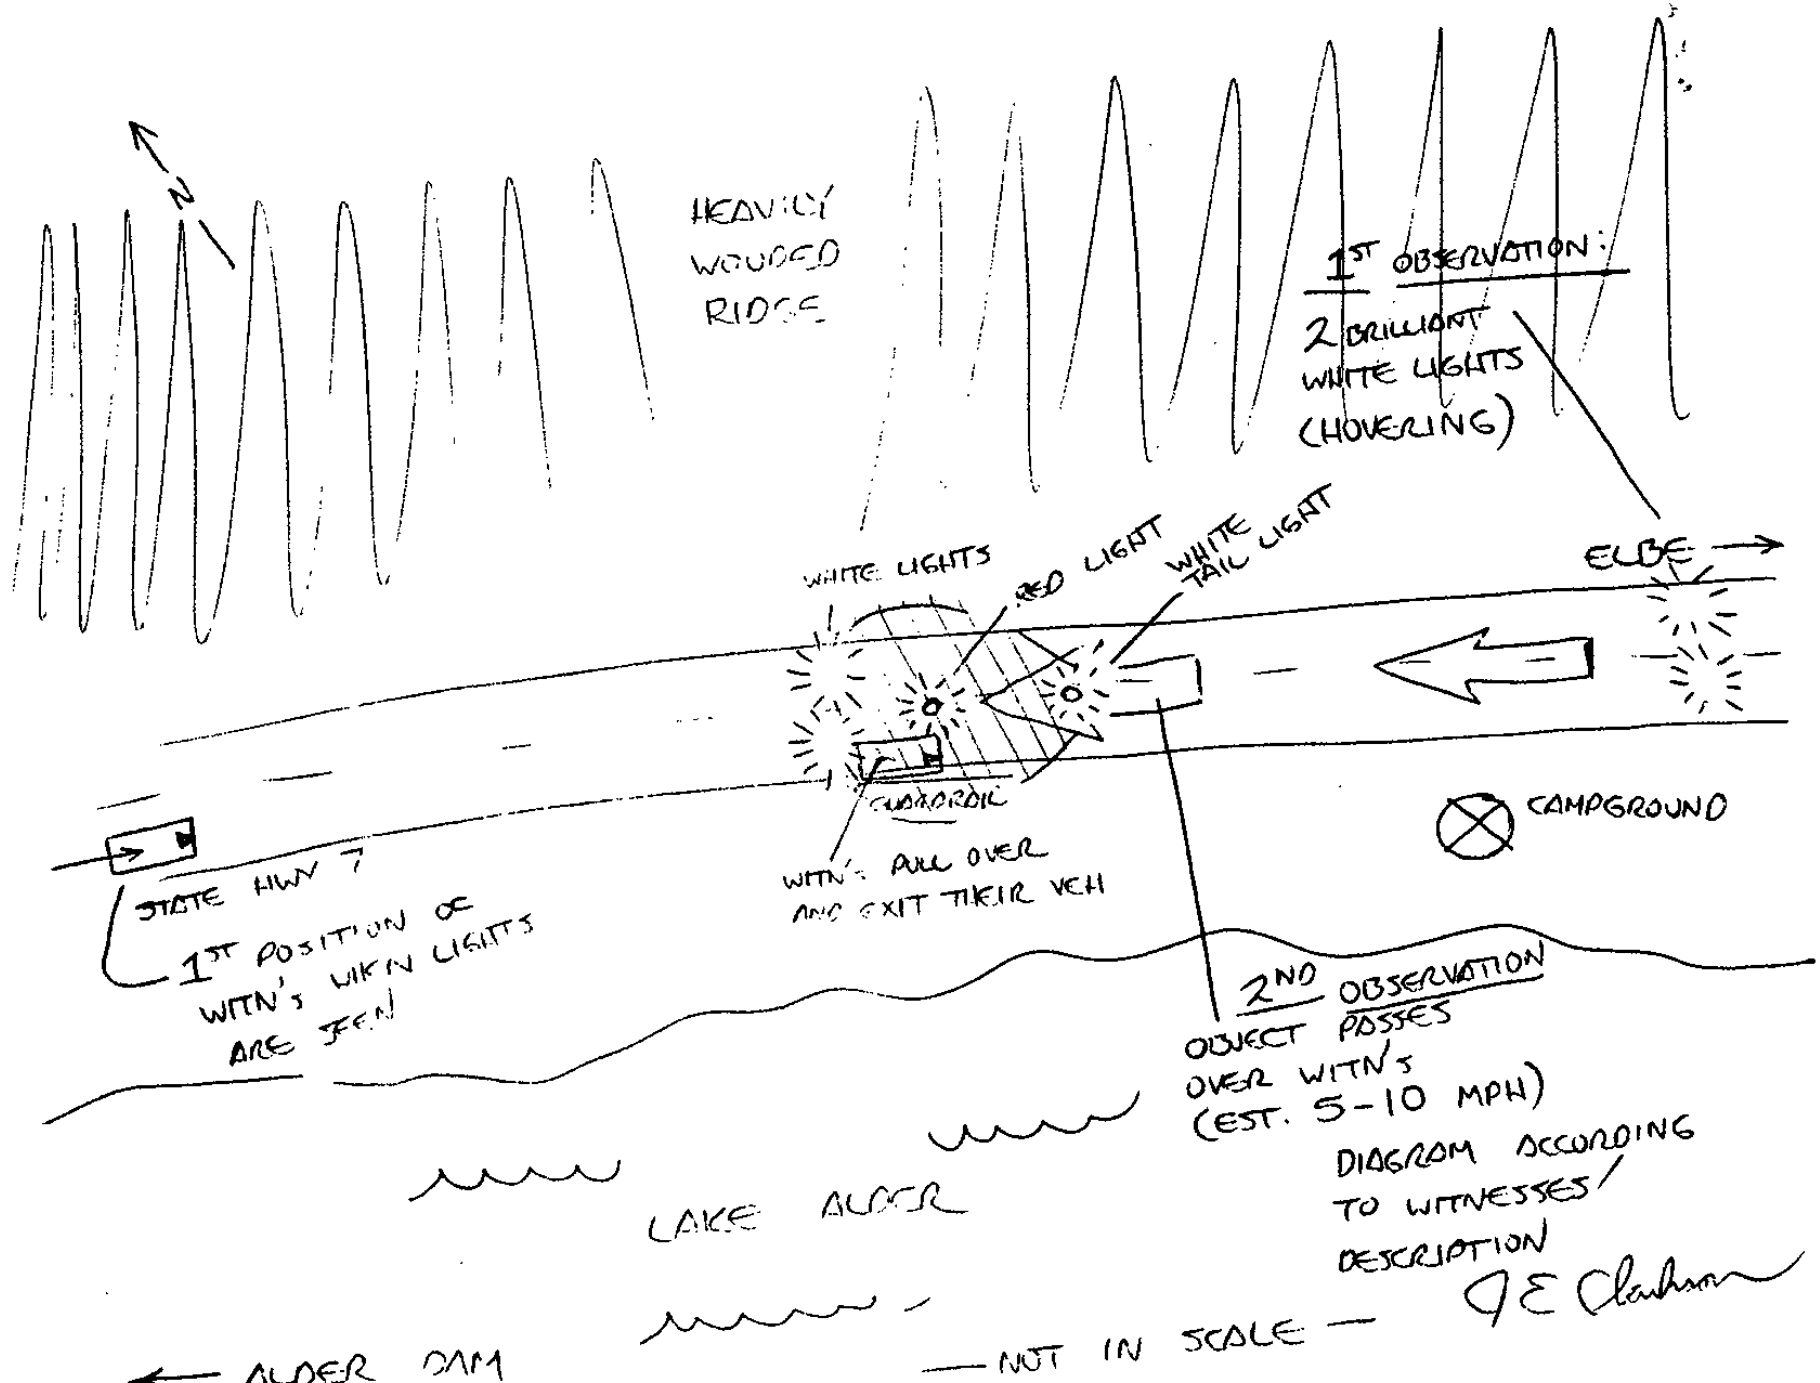 N
HEAVILY
WOODED
RIDGE
1ST OBSERVATION:
2 BRILLIANT
WHITE LIGHTS
(HOVERING)
WHITE LIGHTS
RED LIGHT
WHITE
TAIL LIGHT
ELBE
GUARDRAIL
CAMPGROUND
WITN'S PULL OVER
AND EXIT THEIR VEH
STATE HWY 7
1ST POSITION OF
WITN'S WHEN LIGHTS
ARE SEEN
2ND OBSERVATION
OBJECT PASSES
OVER WITN'S
(EST. 5-10 MPH)
DIAGRAM ACCORDING
TO WITNESSES'
DESCRIPTION
J E Clarkson
LAKE ALDER
— NOT IN SCALE —
ALDER DAM